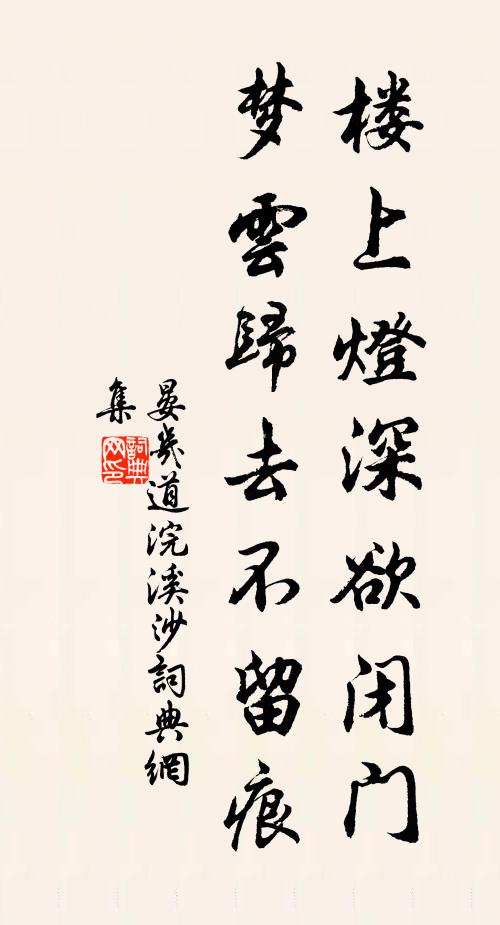 楼上燈深欲闭门
梦雲歸去不留痕
晏幾道浣溪沙詞典網
集
詞典网印